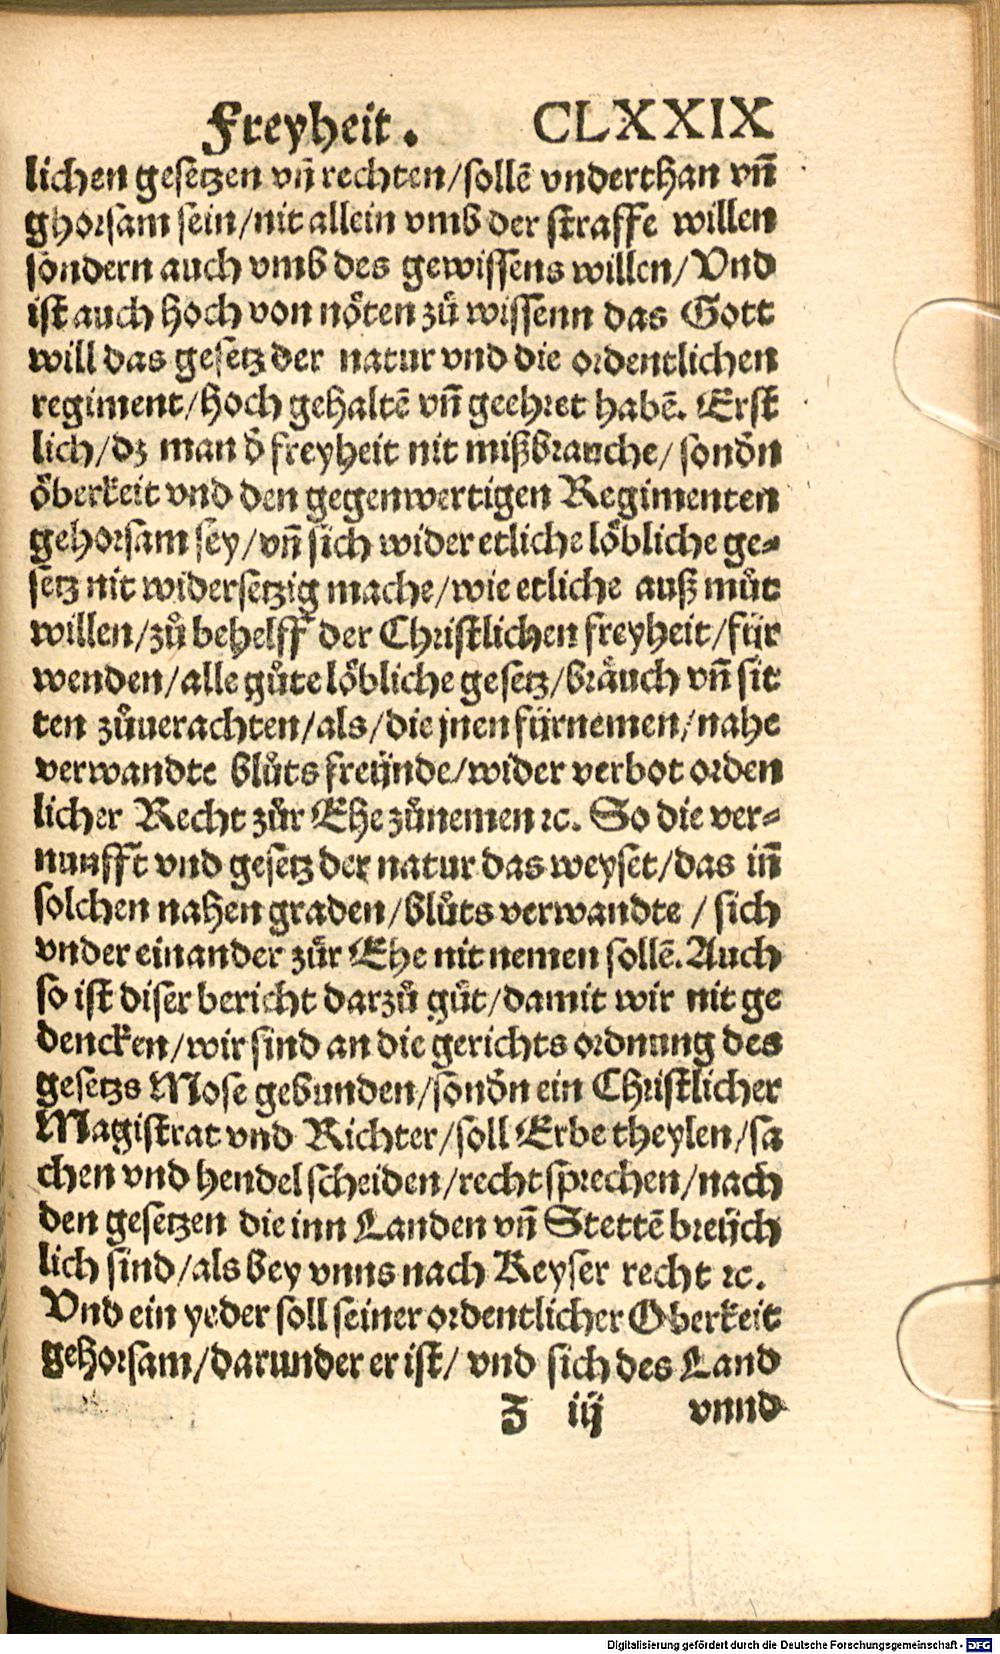 Freyheit. CLXXIX
lichen gesetzen vñ rechten/sollē vnderthan vñ
ghorsam sein/nit allein vmb der straffe willen
sondern auch vmb des gewissens willen/Vnd
ist auch hoch von nöten zů wissenn das Gott
will das gesetz der natur vnd die ordentlichen
regiment/hoch gehaltē vñ geehret habē. Erst
lich/dz man d̄ freyheit nit mißbrauche/sond̄n
öberkeit vnd den gegenwertigen Regimenten
gehorsam sey/vñ sich wider etliche löbliche ge-
setz nit widersetzig mache/wie etliche auß můt
willen/zů behelff der Christlichen freyheit/für
wenden/alle gůte löbliche gesetz/bräuch vñ sit
ten zůuerachten/als/die jnen fürnemen/nahe
verwandte blůts freünde/wider verbot orden
licher Recht zůr Ehe zůnemen ꝛc. So die ver-
nunfft vnd gesetz der natur das weyset/das iñ
solchen nahen graden/blůts verwandte/sich
vnder einander zůr Ehe nit nemen sollē. Auch
so ist diser bericht darzů gůt/damit wir nit ge
dencken/wir sind an die gerichts ordnung des
gesetzs Mose gebunden/sond̄n ein Christlicher
Magistrat vnd Richter/soll Erbe theylen/sa
chen vnd hendel scheiden/recht sprechen/nach
den gesetzen die inn Landen vñ Stettē breüch
lich sind/als bey vnns nach Keyser recht ꝛc.
Vnd ein yeder soll seiner ordentlicher Oberkeit
gehorsam/darunder er ist/vnd sich des Land
Z iij vnnd
Digitalisierung gefördert durch die Deutsche Forschungsgemeinschaft - DFG